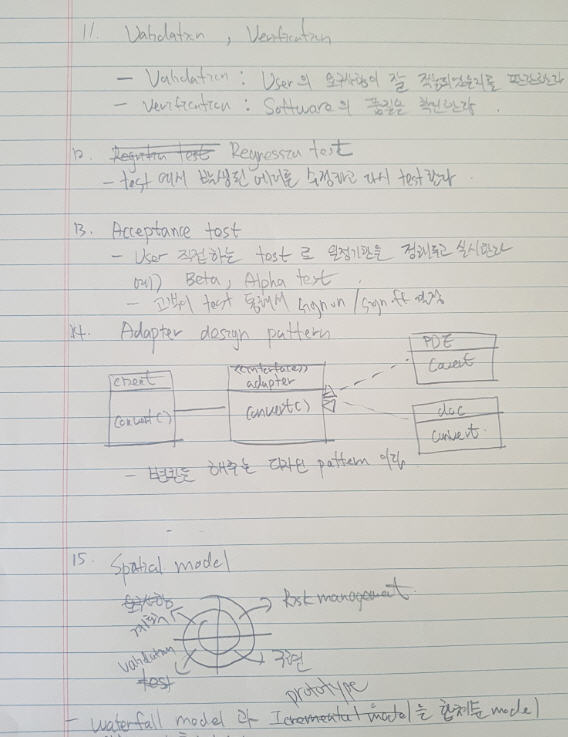 11. Validation , Verification
- Validation : User의 요구사항이 잘 적용되었는지를 판단한다
- Verification : Software의 품질을 확인한다 .
12. Regression test
- test 에서 발생된 에러를 수정하고 다시 test 한다 .
13. Acceptance test
- User 직접하는 test 로 일정기간을 정해두고 실시한다
예)) Beta, Alpha test .
- 고객이 test 통해서 sign on / sign off 결정
14. Adapter design pattern
client
convert()
<<interface>>
adapter
convert()
PDF
convert
doc
convert
- 변환을 해주는 디자인 pattern 이다.
15. Spatial model
계획
Risk management
validation
test
구현
prototype
- waterfall model 과 Incremental model을 합쳐둔 model